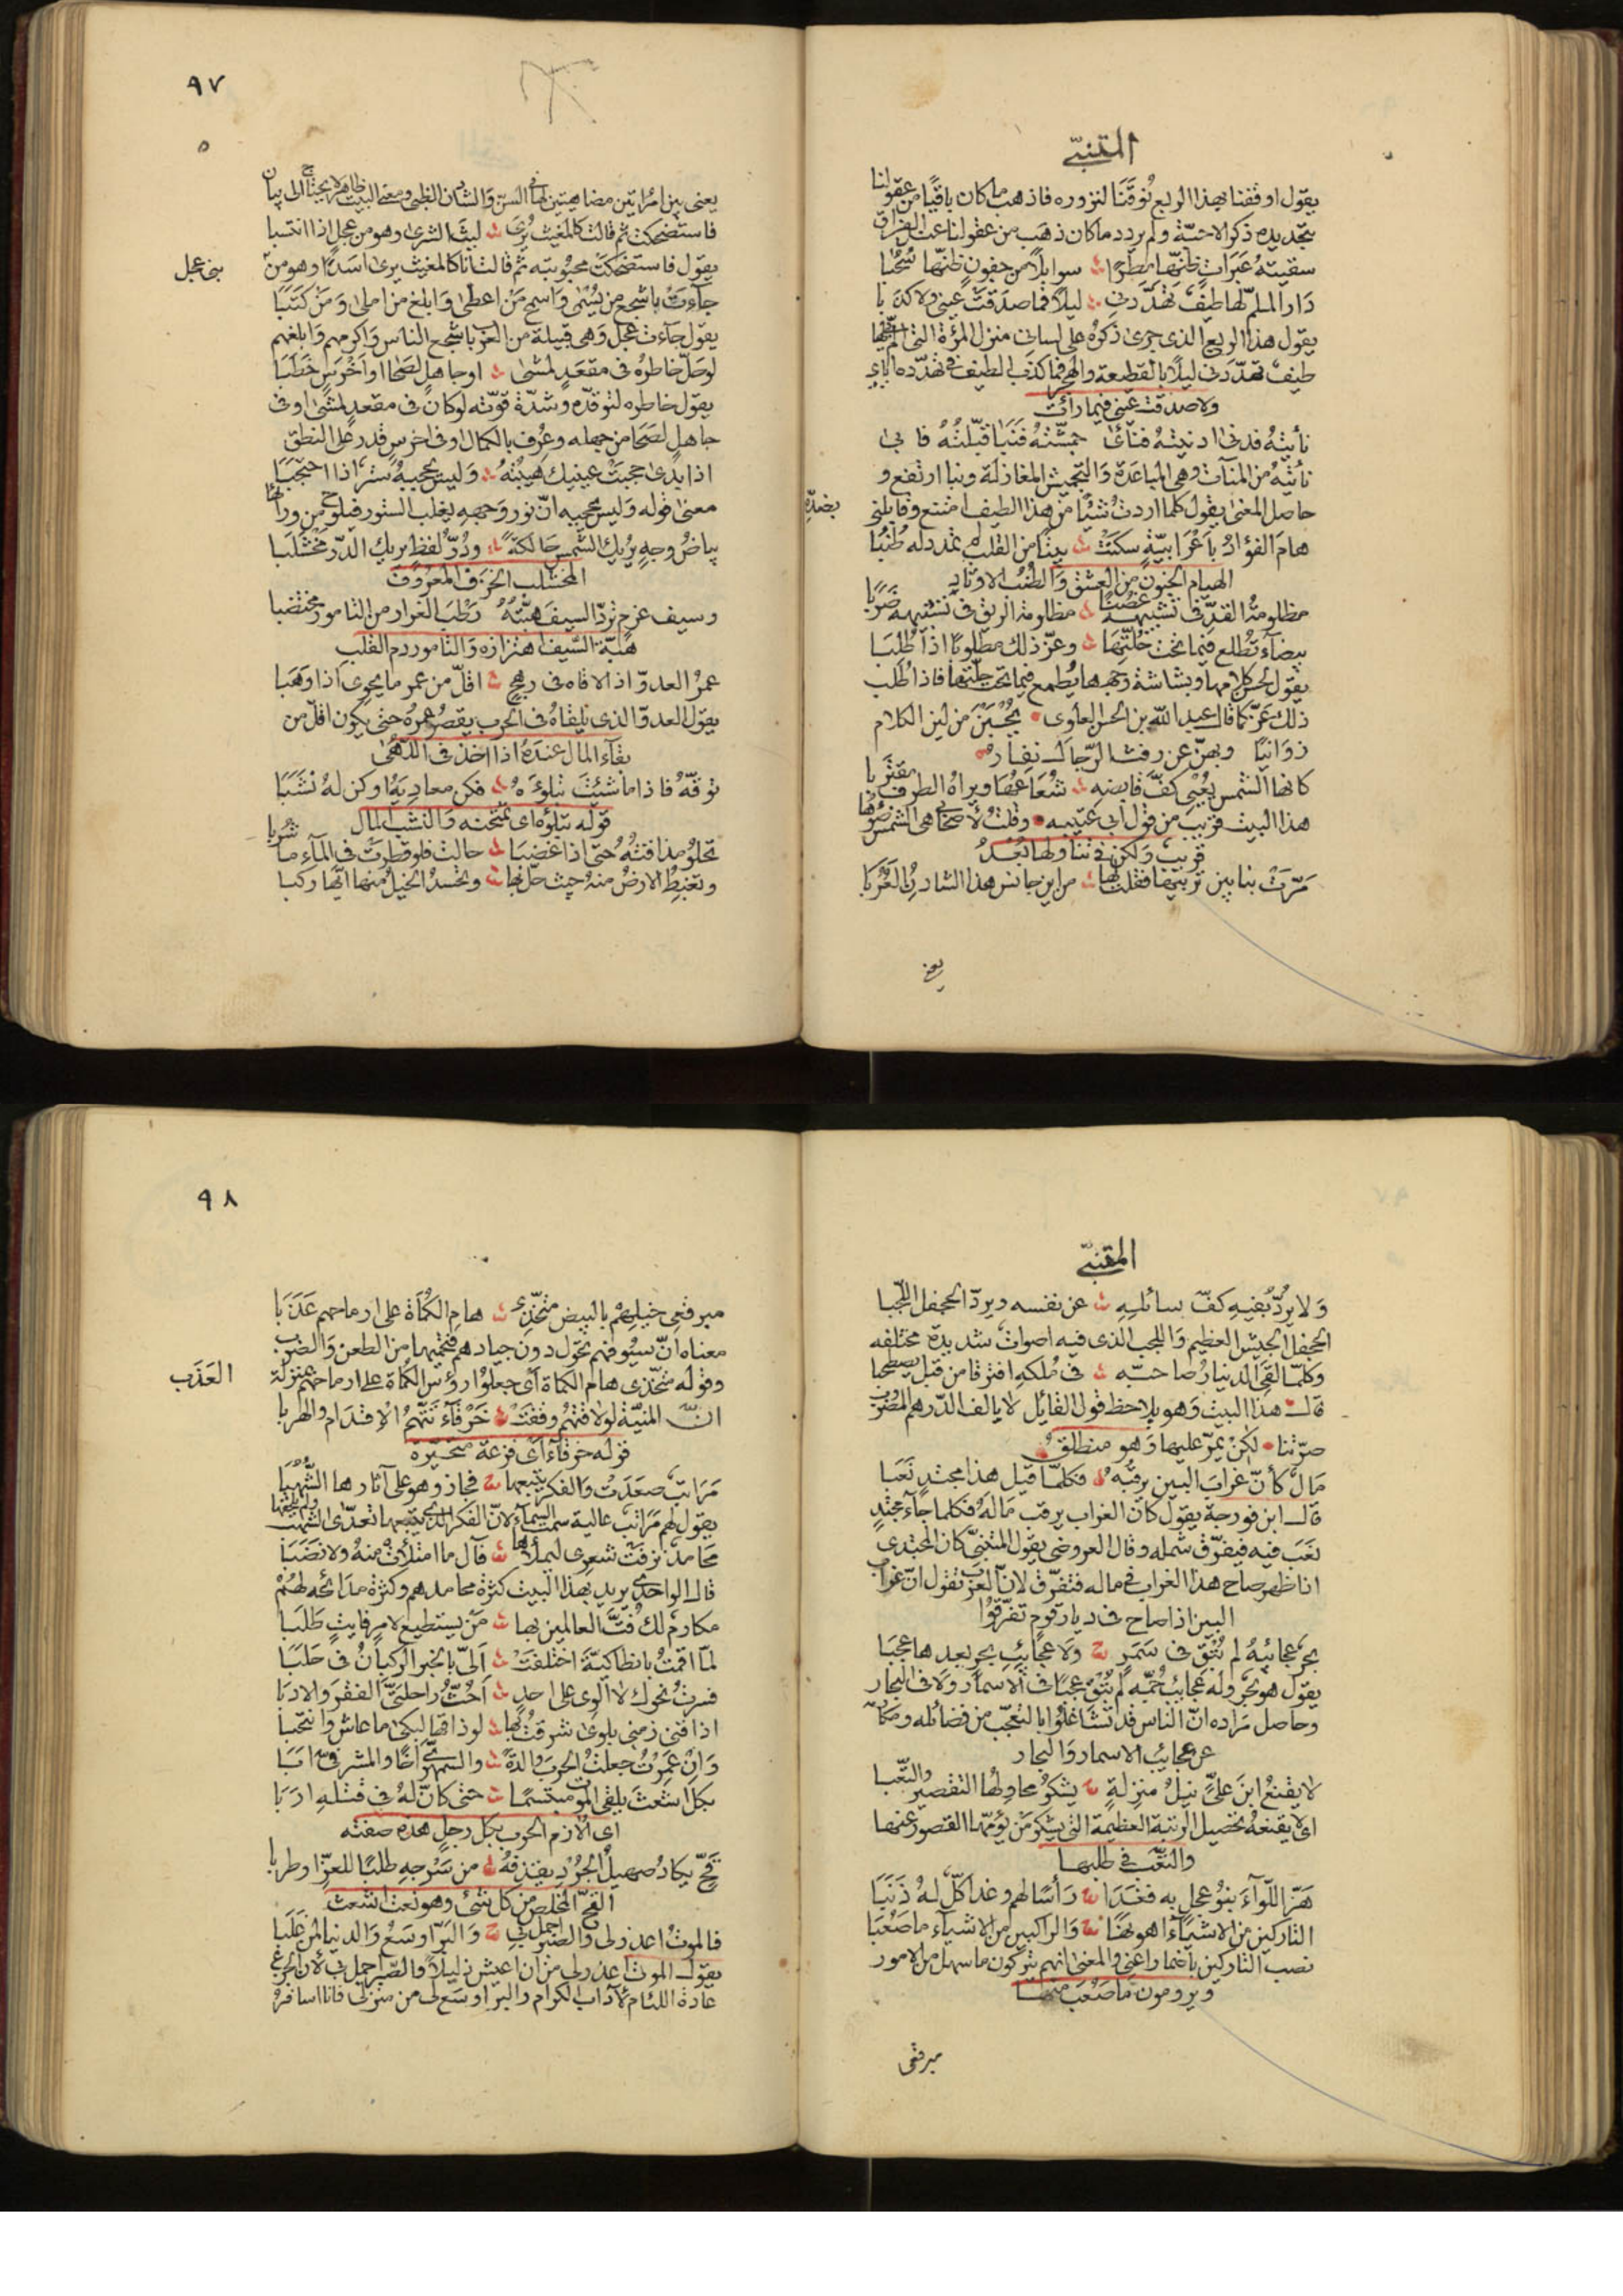 المتنبّي
يقول اوقفنا بهذا الربع نوقنا لنزوره فاذهب ما كان باقيًا من عقولنا
بتجديده ذكر الاحبّة ولم يردد ما كان ذهب من عقولنا عند الفراق
سقيته عَبَراتٍ ظنّها مطرًا ؞ سوايلًا من جفونٍ ظنّها سُحُبا
دَارُ الملمّ لها طيفٌ تهدّدني ؞ ليلًا فما صدَقَتْ عيني ولا كذَبا
يقول هذا الربع الذي جرى ذكره على لساني منزل المرءة التي المّ بها
طيف تهدّدني ليلًا بالقطيعة والهجر فما كذب الطيف في تهدّده اياي
ولا صدقت عيني فيما رأت
نأيتُه فدنى ادنيتُهُ فنأى جمشتُهُ فَنَبَا قبّلتُهُ فابى
نأيتُه من المنآت وهي المباعدة والتجميش المغازلة ونبا ارتفع و
حاصل المعنى يقول كلما اردت شيئًا من هذا الطيف امتنع وقابلني
بضدّه
هامَ الفؤادُ باَعْرَابيّةٍ سكنَتْ ؞ بيتًا من القلب لم تمدد له طُنُبا
الهيام الجنون من العشق والطنُب الاوتاد
مظلومةُ القدّ في تشبيهه غُصُنًا ؞ مظلومة الريق في تشبيهه ضَرَبا
بيضآء تُطْمع فيما تحت حُلّتها ؞ وعزّ ذلك مطلوبًا اذا طُلبَا
يقول لحسن كلامها وبشاشة وجهها يُطمع فيما تحت حلّتها فاذا طُلب
ذلك عَزّ كما قال عبد الله بن الحسن العلوى ۰ يُحْسَبْنَ من لين الكلام
زوَانيًا وبهنّ عن رفث الرّجال نفار
كانها الشمس يُعْيى كفَّ قابضهِ ؞ شُعَاعُهَا ويراهُ الطرف مقتَرِبا
هذا البيت قريب من قول ابي عيينه ۰ وقلتُ لاصحابي هي الشمس ضوئها
قريب ولكن في تناولها بُعْدُ
مَرّت بنا بين تِربَيْها فقلت لها ؞ من اين جانس هذا الشادنُ العَرَبا
يعني
٩٧
يعني بين امرأتين مضاهيتين لها في السنّ والشادن الظبى ومعنى البيت ظاهر لا يحتاج الى بيان
فاستضحكت ثم قالت كالمغيث يُرَى ؞ ليثَ الشرى وهو من عجلٍ اذا انتسبا
يقول فاستضحكت محبوبته ثم قالت انا كالمغيث يرى اسدًا وهو من
بني عجل
جآءت باشجع من يُسْمَى وَاسمح مَنْ اعطى وَابلغ من املى وَمَنْ كتَبَا
يقول جآءت عجل وَهي قبيلة من العرب باشجع الناس واكرمهم وَابلغهم
لوحَلّ خاطرُه في مقعَدٍ لمشى ؞ او جاهلٍ لصَحَا او اَخْرَسٍ خَطَبَا
يقول خاطره لتوقدّه وشدّة قوّته لو كان في مقعد لمشى او في
جاهل لصَحَا من جهله وعُرف بالكمال او في اخرس قدر على النطق
اذا بدَى حجبَتْ عينيك هيبتُهُ ؞ وَليس يحجبهُ سترٌ اذا احتجَبَا
معنى قوله وَليس يحجبه انّ نور وَجهه يغلب الستور فيلوح من ورآئها
بياضُ وجهٍ يُريك الشّمس حَالكةً ؞ ودُرُّ لفظٍ يريك الدّر مَخْشَلَبا
المخشلب الخزف المعروف
وسيف عزم تردّ السيفَ هبّتُهُ رَطبَ الغرار من التامور مختضبا
هبّة السّيف اهتزازه وَالتامور دم القلب
عمرُ العدوّ اذا لاقاه في رهجٍ ؞ اقلّ من عمر ما يحوى اذا وَهَبا
يقول العدوّ الذي يلقاهُ في الحرب يقصُر عمرُه حتى يكون اقلّ من
بقآء المال عندَهُ اذا اخذ في اللُهى
توقّهُ فاذا ما شئتَ تبلوَهُ ؞ فكن معاديَهُ او كن لهُ نشَبَا
قوله تبلوه اى تمتحنه والنشب المال
تحلو مذاقتُهُ حتى اذا غضبَا ؞ حالت فلو قطرَتْ في المآءِ ما شُربا
وتغبطُ الارضُ منهُ حيث حلّ بها ؞ وتحسدُ الخيلُ منها ايّها ركبا
المتنبّي
وَلا يردُّ بفيهِ كفّ سائلهِ ؞ عن نفسه ويردّ الجحفل اللّجبا
الجحفل الجيش العظيم وَاللجب الذي فيه اصوات شديدة مختلفه
وكلّما لقىَ الدينارُ صاحبَه ؞ في مُلكه افترقا من قبل يصطحبا
قال هذا البيت وَهو يلاحظ قول القائل لا يالف الدّرهم المضروب
صرّتنا ۰ لكن يمرّ عليها وَهو منطلق
مَالٌ كأنّ غرابَ البين يرقبُه ؞ فكلّما قيل هذا مجتدٍ نَعَبا
قال ابن فورجة يقول كانّ الغراب يرقب مَالَهُ فكلما جآء مجتدٍ
نعَبَ فيه فيفرّق شمله وقال العروضى يقول المتنبّى كان المجتدى
اذا ظهر صاح هذا الغراب في ماله فتفرّق لان العرب تقول انّ غراب
البين اذا صاح في ديار قوم تفرّقوُا
بحرٌ عجائبهُ لم تُبْق في سَمَرٍ ؞ وَلا عجائبِ بحرٍ بعدها عجبَا
يقول هو بحر وله عجائب جُمّه لم تُبْق عجبًا في الاسمار وَلا في البحار
وحاصل مَراده انّ الناس قد تشَاغلُوا بالتعجّب من فضائله ومكارمه
عن عجائبُ الاسمار وَالبحار
لا يقنعُ ابنَ علىٍّ نيلُ منزلةٍ ؞ يشكو محاولُها التقصير وَالتّعبا
اى لا يقنعهُ تحصيل الرتبة العظيمة التي يشكو مَن يؤمّها القصور عنها
والتعّب في طلبها
هَزّ اللّوآءَ بنوُ عجلٍ به فغدَا ؞ رَأسًا لهم وغدا كلّ لهُ ذَنَبا
التاركين من الاشيآء اهونها ؞ وَالراكبين من الاشيآء ما صَعُبَا
نصب التاركين باضمار اعني والمعنى انهم يتركون ما سهل من الامور
ويرومون ما صَعُبَ منها
مبرقعى
٩٨
مبرقعى خيلِهِمْ بالبيض متخّذى ؞ هامِ الكُمَاة على ارماحهم عَذَبا
معناه انّ سيُوفهم تحول دون جيادهم فتحميها من الطعن وَالضرب
وقوله متخّذى هام الكماة اى جعلوُا رؤس الكُماة على ارماحهم بمنزلة
العَذَب
انّ المنيّة لو لاقتهُم وقفَتْ ؞ خَرْقآءَ تتّهمُ الاقدام والهربا
قوله خرقآء اى فزعة متحيّرة
مَرَاتبٌ صعَدَتْ وَالفكر يتبعها ؞ فجاز وهو على آثارها الشُهُبا
يقول لهم مَراتب عالية سمت السمآء لانّ الفكر الذى يتبعها تعدّى الشهب ولم يلحقها
محَامدٌ نزفَتْ شعرِى ليملأها ؞ فآل ما امتلأت منهُ ولا نضَبَا
قال الواحدى يريد بهذا البيت كثرة محامدهم وكثرة مدَائحه لهُمْ
مكارمٌ لك فُتَّ العالمين بها ؞ مَنْ يستطيع لامرٍ فايتٍ طَلَبا
لمّا اقمتُ بانطاكيّةَ اختلفَتْ ؞ اَلىّ بالخبر الركبانُ في حَلَبَا
فسرتُ نحوك لا الوى على احدٍ ؞ اَحُثُّ راحلتَىَّ الفقرَ والادبَا
اذاقنى زمنى بلوى شرقتُ بها ؞ لو ذاقها لبكى ما عاش وانتحبا
وَانْ عَمِرْتُ جعلتُ الحربَ والدةً ؞ والسمهرىّ اخًا والمشرفىّ ابَا
بكل اشعثَ يلقى الموت مبتسمًا ؞ حتى كانّ لهُ في قتلهِ ارَبَا
اى الازم الحرب بكل رجلٍ هذه صفته
قُحّ يكادُ صهيلُ الجُرْدِ يقذفُهُ ؞ من سَرْجهِ طلبًا للعزّ او طربا
القحّ الخلص من كل شئ وهو نعت اشعث
فالموتُ اعذر لى والصّبر اجمل بى ؞ وَالبرّ اوسَعُ وَالدنيا لمَن غلَبا
يقول الموت اعذر لى من ان اعيش ذليلًا وَالصّبر اجمل بى لأنّ الجزع
عَادة اللئام لادآب الكرام والبرّ اوسَع لى من منزلى فانا اسافرُ